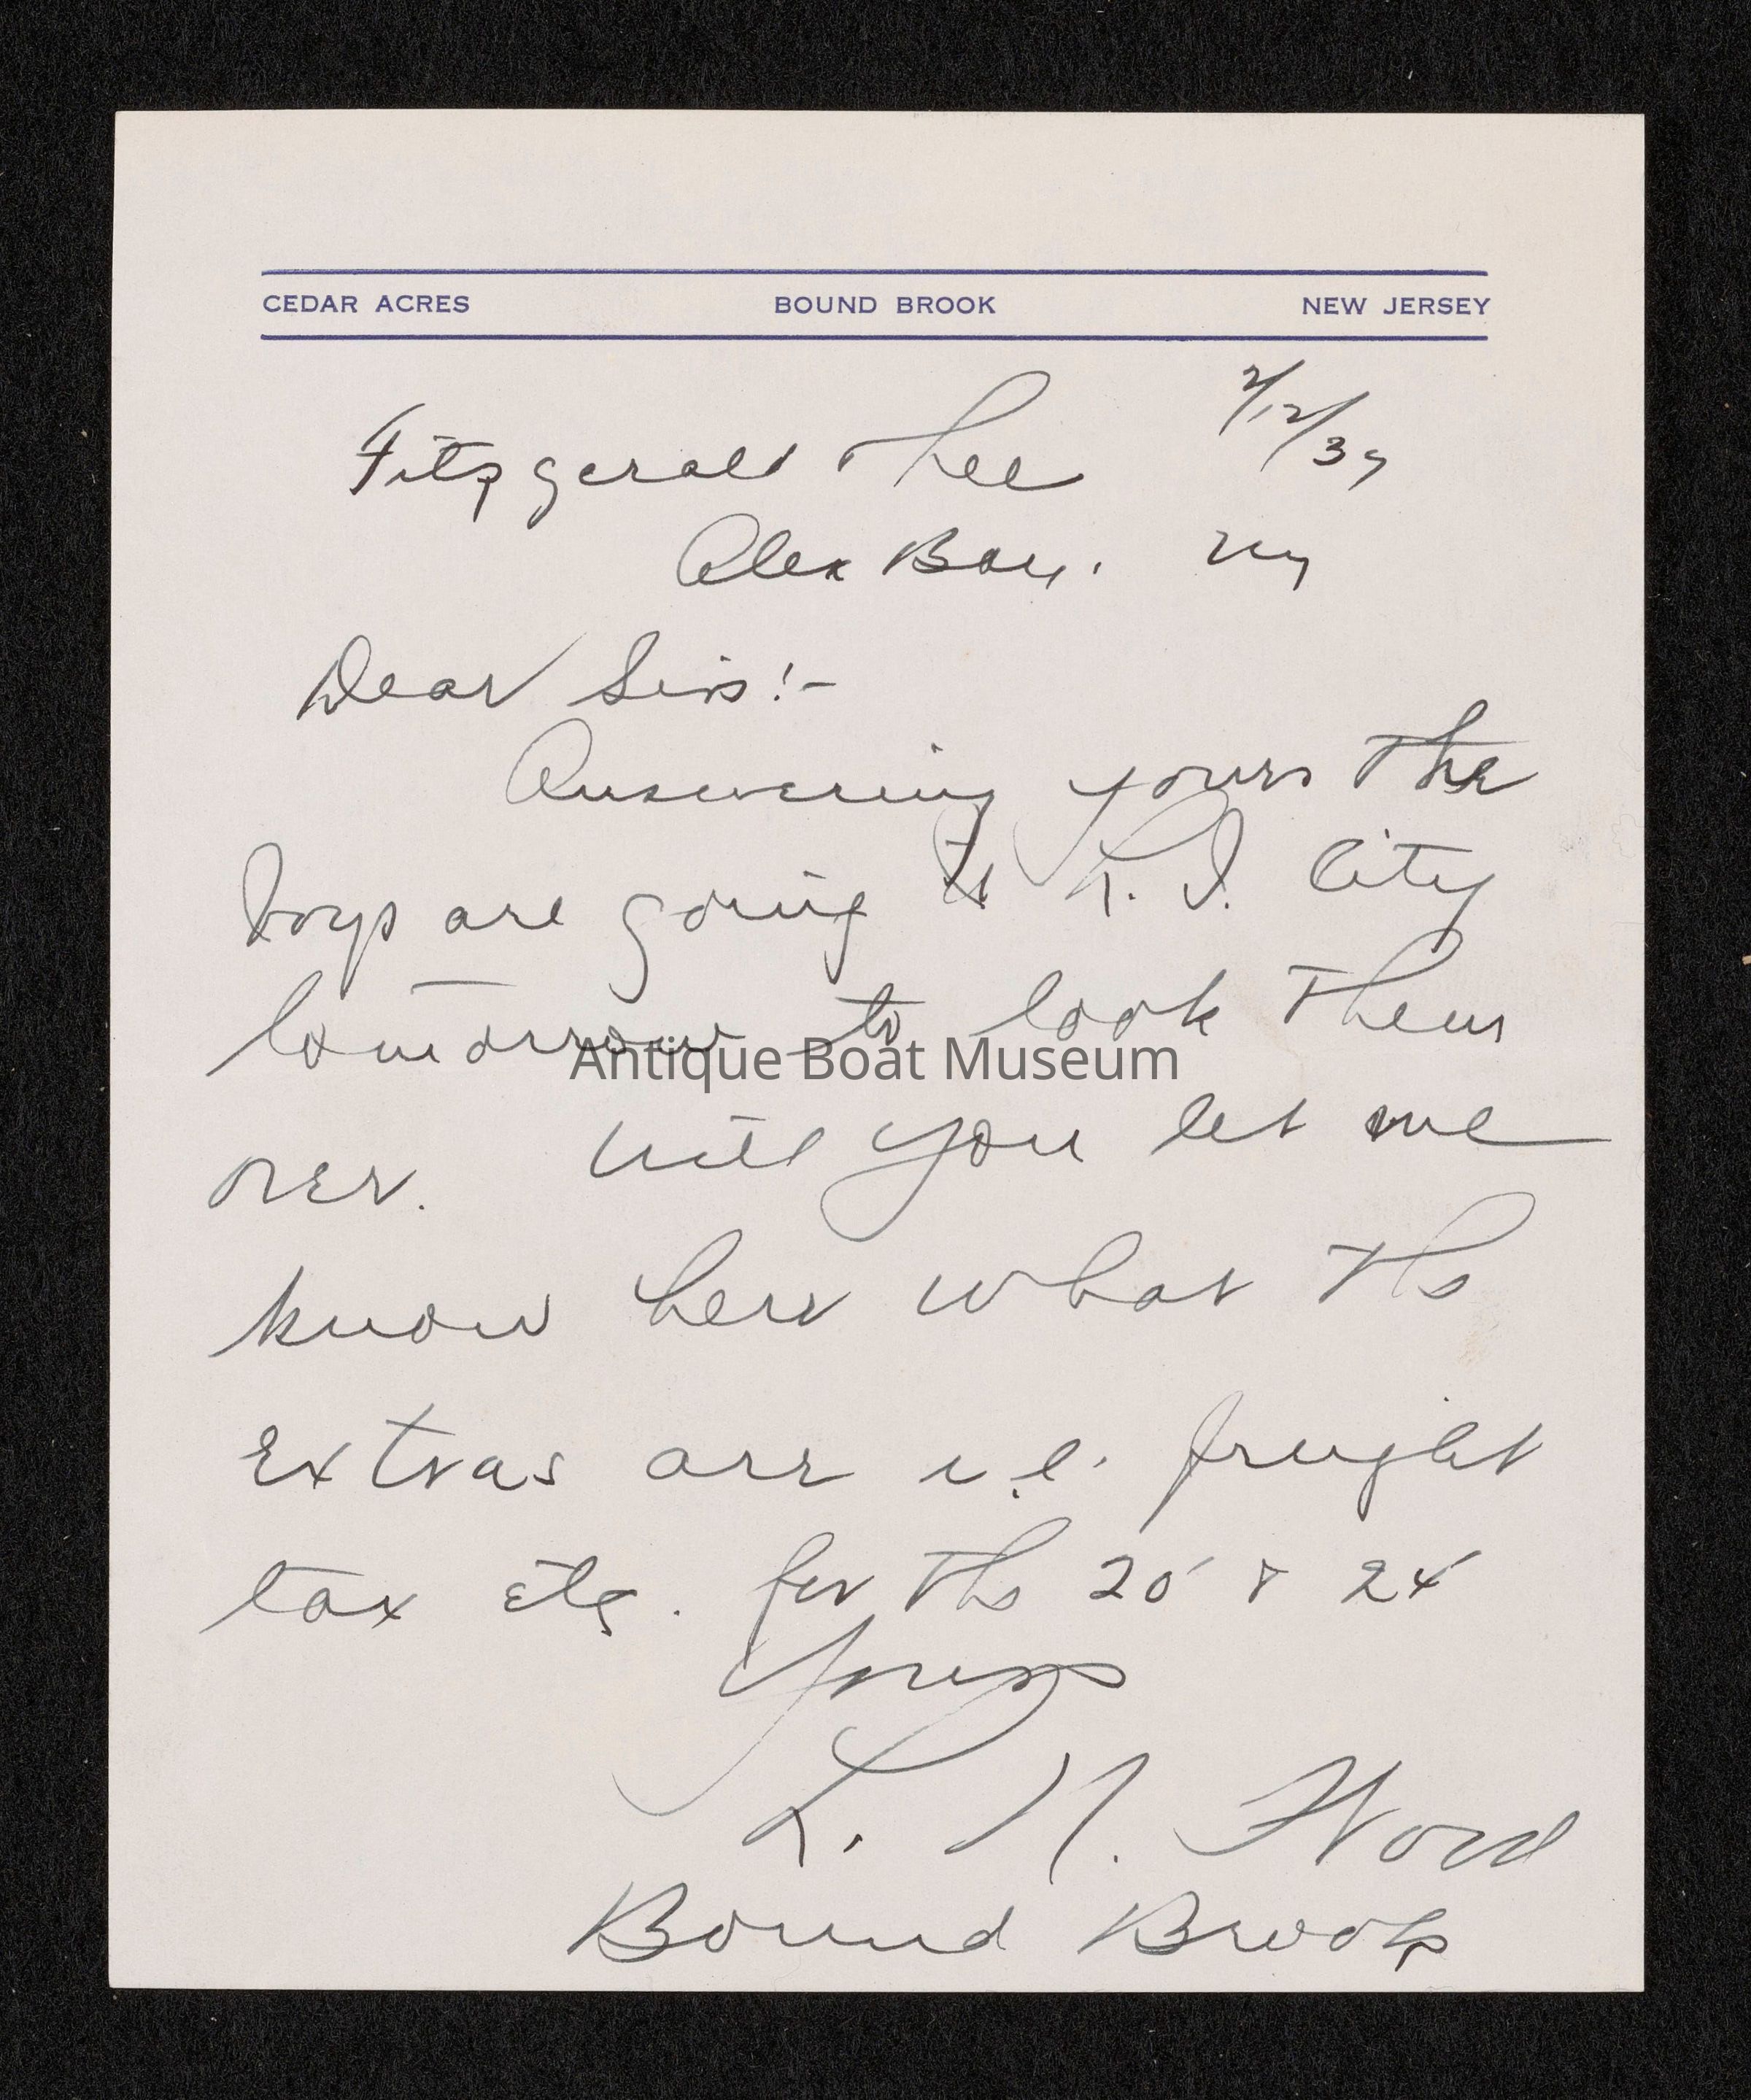 CEDAR ACRES BOUND BROOK NEW JERSEY
2/12/39
Fitzgerald & Lee
Alex Bay. NY
Dear Sirs:-
Answering yours the
boys are going to L. I. City
tomorrow to look them
over. Will you let me
know here what the
extras are i.e. freight
tax etc. for the 20' & 24'
Yours
L. N. Wood
Bound Brook
Antique Boat Museum